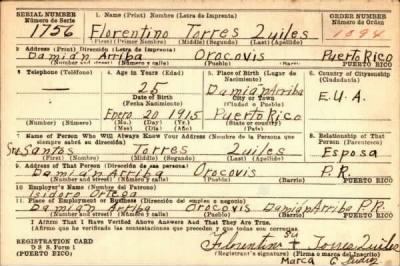 SERIAL NUMBER 1. Name (Print) Nombre (Letra de Imprenta) ORDER NUMBER
Número de Serie Número de Orden
1756 Florentino Torres Quiles 1094
(First) (Primer Nombre) (Middle) (Segundo) (Last) (Apellido)
3 Address (Print) Dirección (Letra de Imprenta)
Damián Arriba Orocovis Puerto Rico
(Number and street) (Número y calle) (Barrio) PUERTO RICO
4. Telephone (Teléfono) 4. Age in Years (Edad) 5. Place of Birth (Lugar de 6. Country of Citizenship
Nacimiento) (Ciudadanía)
— 25 Damián Arriba
Date of Birth City or Town
(Fecha Nacimiento) (Ciudad o Pueblo) E.U.A.
Enero 20 1915 Puerto Rico
(Number) (Número) (Mo.) (Day) (Yr.) (State or country)
7 Name of Person Who Will Always Know Your Address (Nombre de la Persona que 8. Relationship of That
siempre sabrá su dirección) Person (Parentesco)
Sra. Santos Torres Quiles Esposa
(First) (Primer Nombre) (Middle) (Segundo) (Last) (Apellido)
9. Address of That Person (Dirección de esa persona)
Damián Arriba Orocovis P.R.
(Number and street) (Número y calle) (Barrio) PUERTO RICO
10 Employer's Name (Nombre del Patrono)
Isidoro Ortega
11 Place of Employment or Business (Dirección del empleo o negocio)
Damián Arriba Orocovis Damián Arriba P.R.
(Number and street) (Número y calle) (Barrio) PUERTO RICO
I Affirm That I Have Verified Above Answers and That They Are True.
(Afirmo que he verificado las contestaciones que preceden y que todas son correctas)
REGISTRATION CARD Florentino + Torres Quiles
D S S. Form 1 (Registrant's signature) (Firma del Registrado)
(PUERTO RICO) Marca